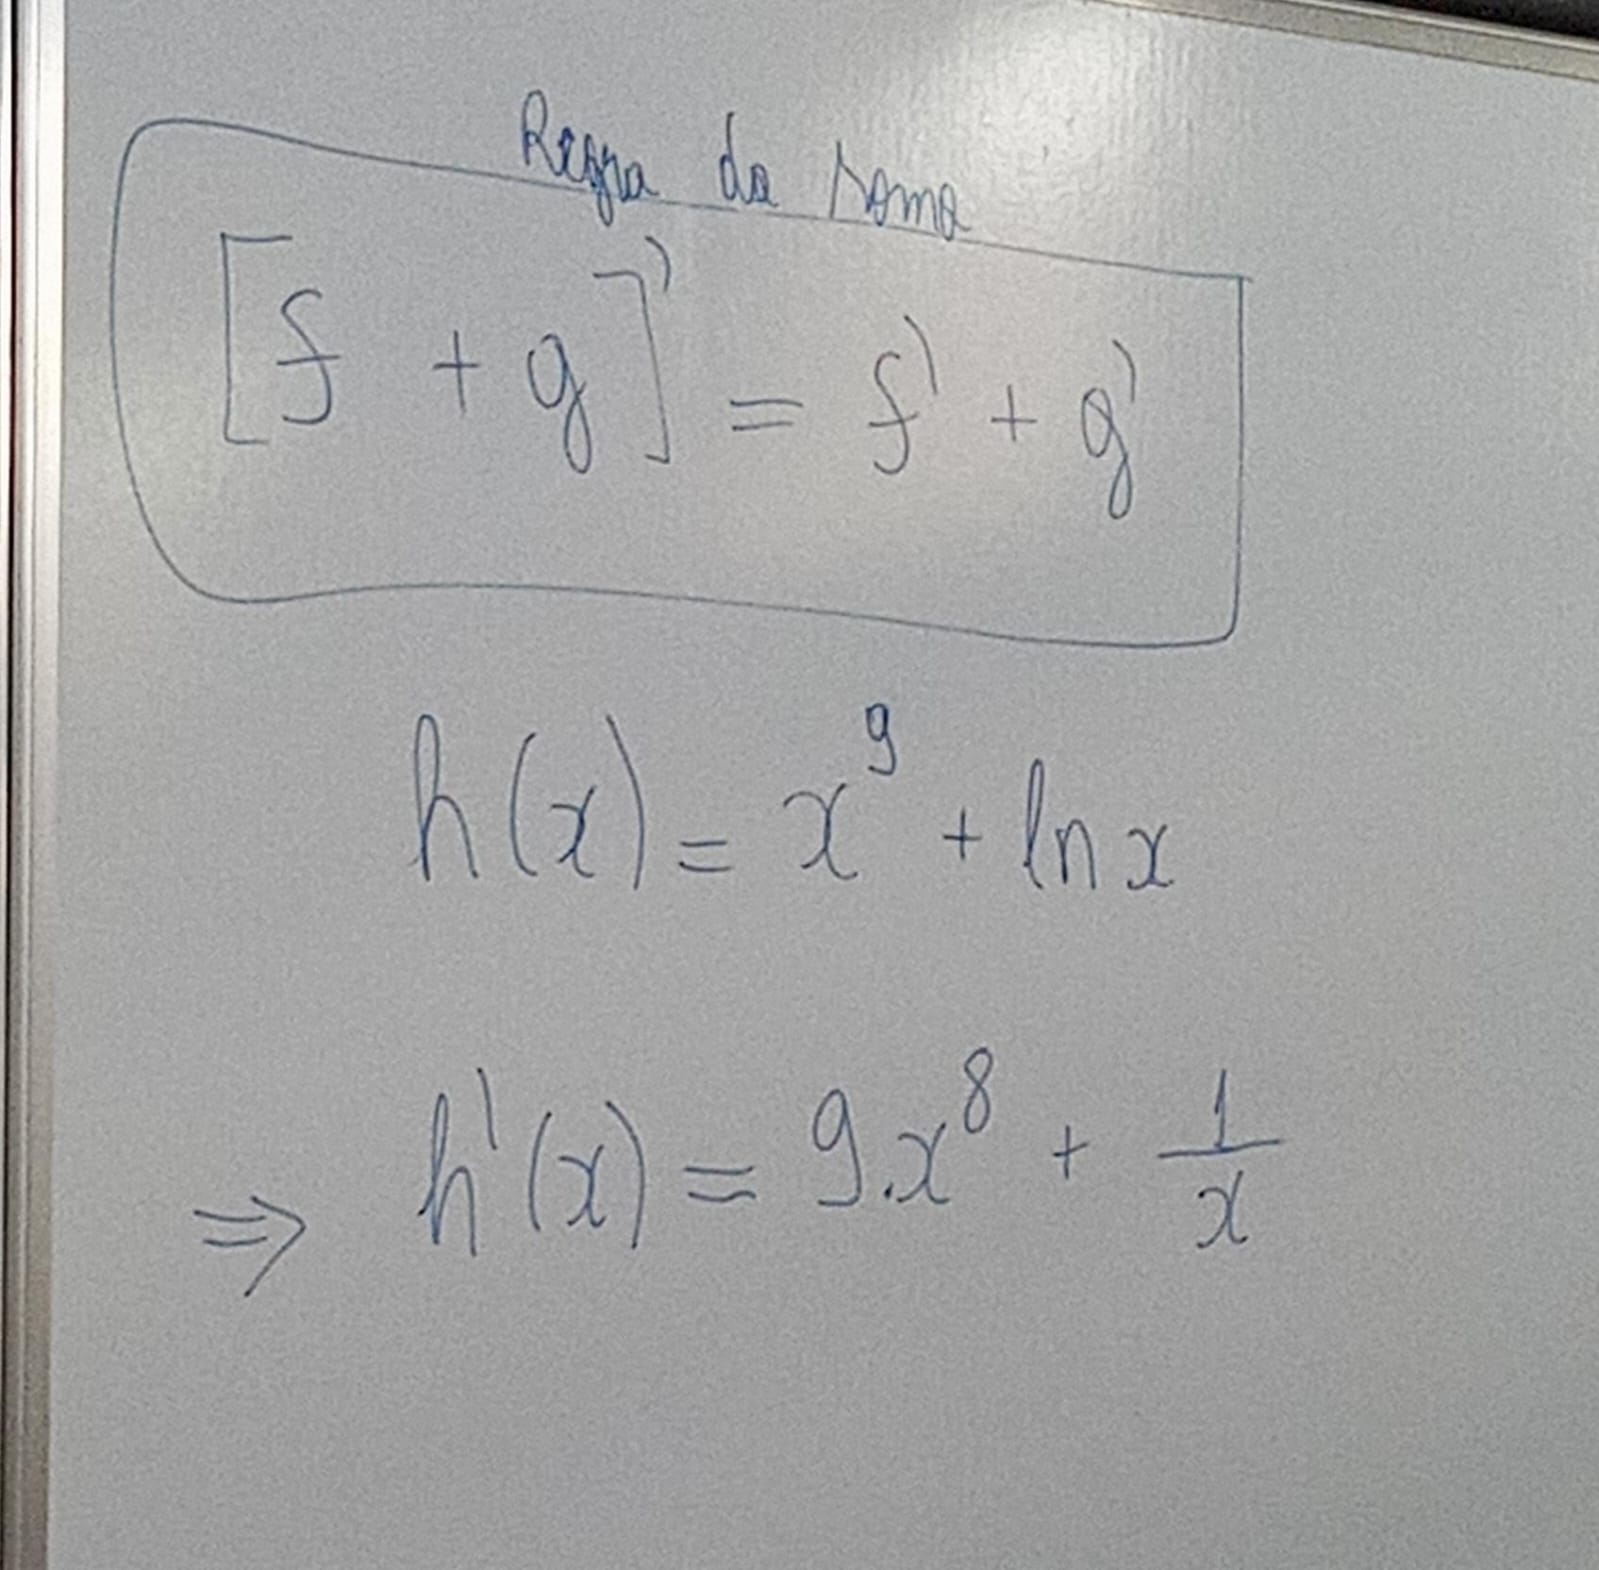 Regra da soma
[f + g]' = f' + g'
h(x) = x⁹ + ln x
⇒ h'(x) = 9.x⁸ + 1/x